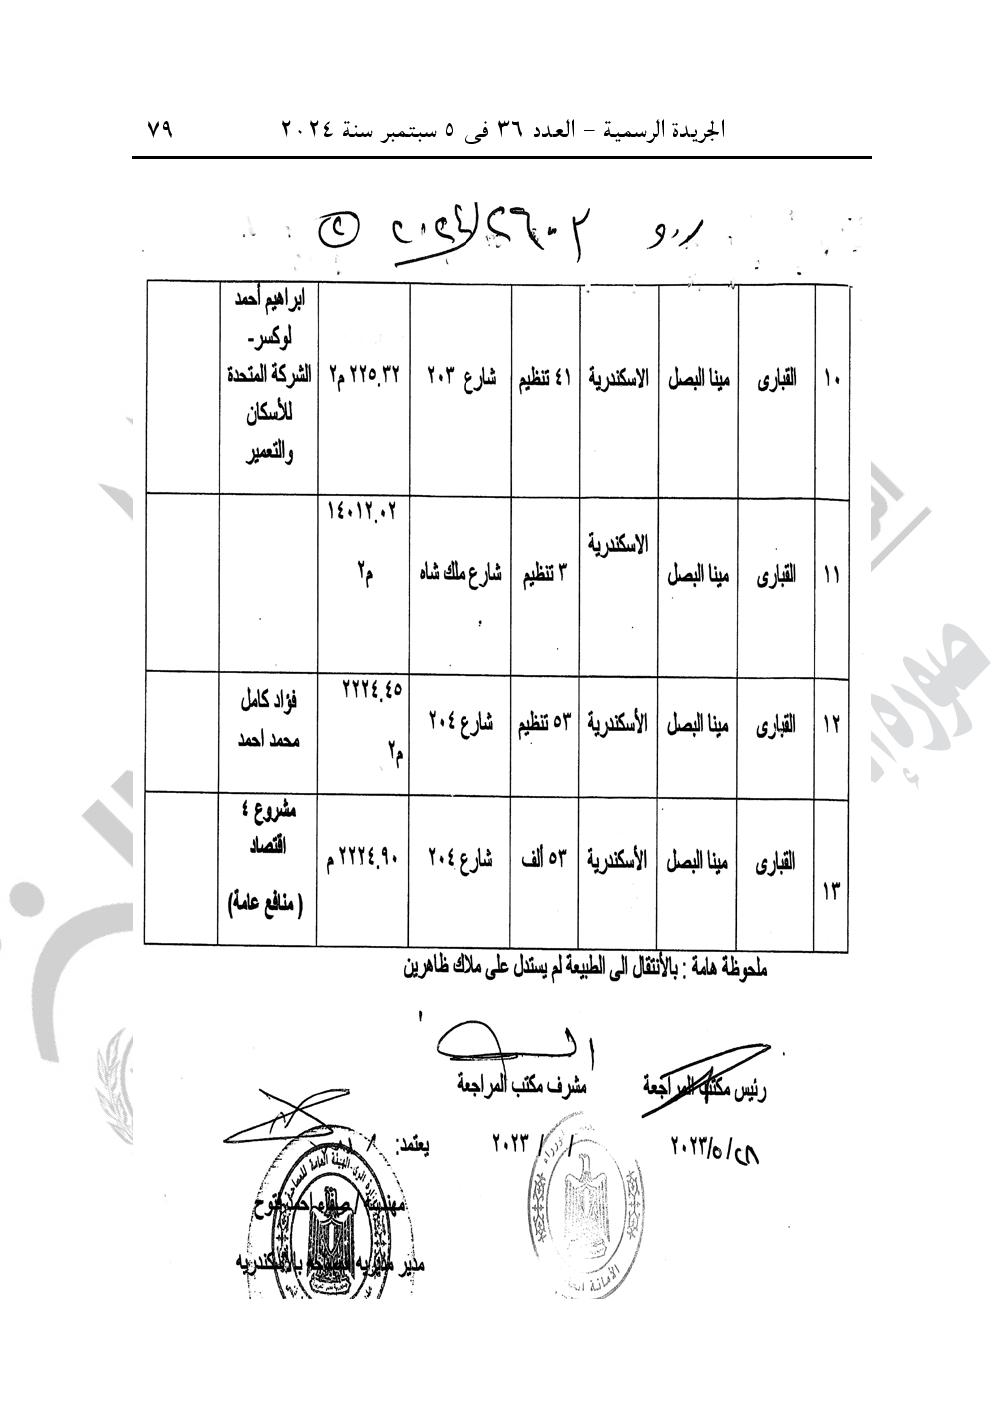 الجريدة الرسمية – العدد ٣٦ فى ٥ سبتمبر سنة ٢٠٢٤ ٧٩
١٠ القبارى مينا البصل الاسكندرية ٤١ تنظيم شارع ٢٠٣ ٢٢٥,٣٢ م٢ ابراهيم أحمد
لوكسر-
الشركة المتحدة
للأسكان
والتعمير
١١ القبارى مينا البصل الاسكندرية ٣ تنظيم شارع ملك شاه ١٤٠١٢,٠٢
م٢
١٢ القبارى مينا البصل الأسكندرية ٥٣ تنظيم شارع ٢٠٤ ٢٢٢٤,٤٥
م٢ فؤاد كامل
محمد احمد
١٣ القبارى مينا البصل الأسكندرية ٥٣ ألف شارع ٢٠٤ ٢٢٢٤,٩٠ م مشروع ٤
اقتصاد
( منافع عامة)
ملحوظة هامة : بالأنتقال الى الطبيعة لم يستدل على ملاك ظاهرين
رئيس مكتب المراجعة مشرف مكتب المراجعة
٢٠٢٣/٥/٢٨ / / ٢٠٢٣ يعتمد:
مهندسة / صفاء احمد فتوح
مدير مديريه المساحة بالأسكندريه